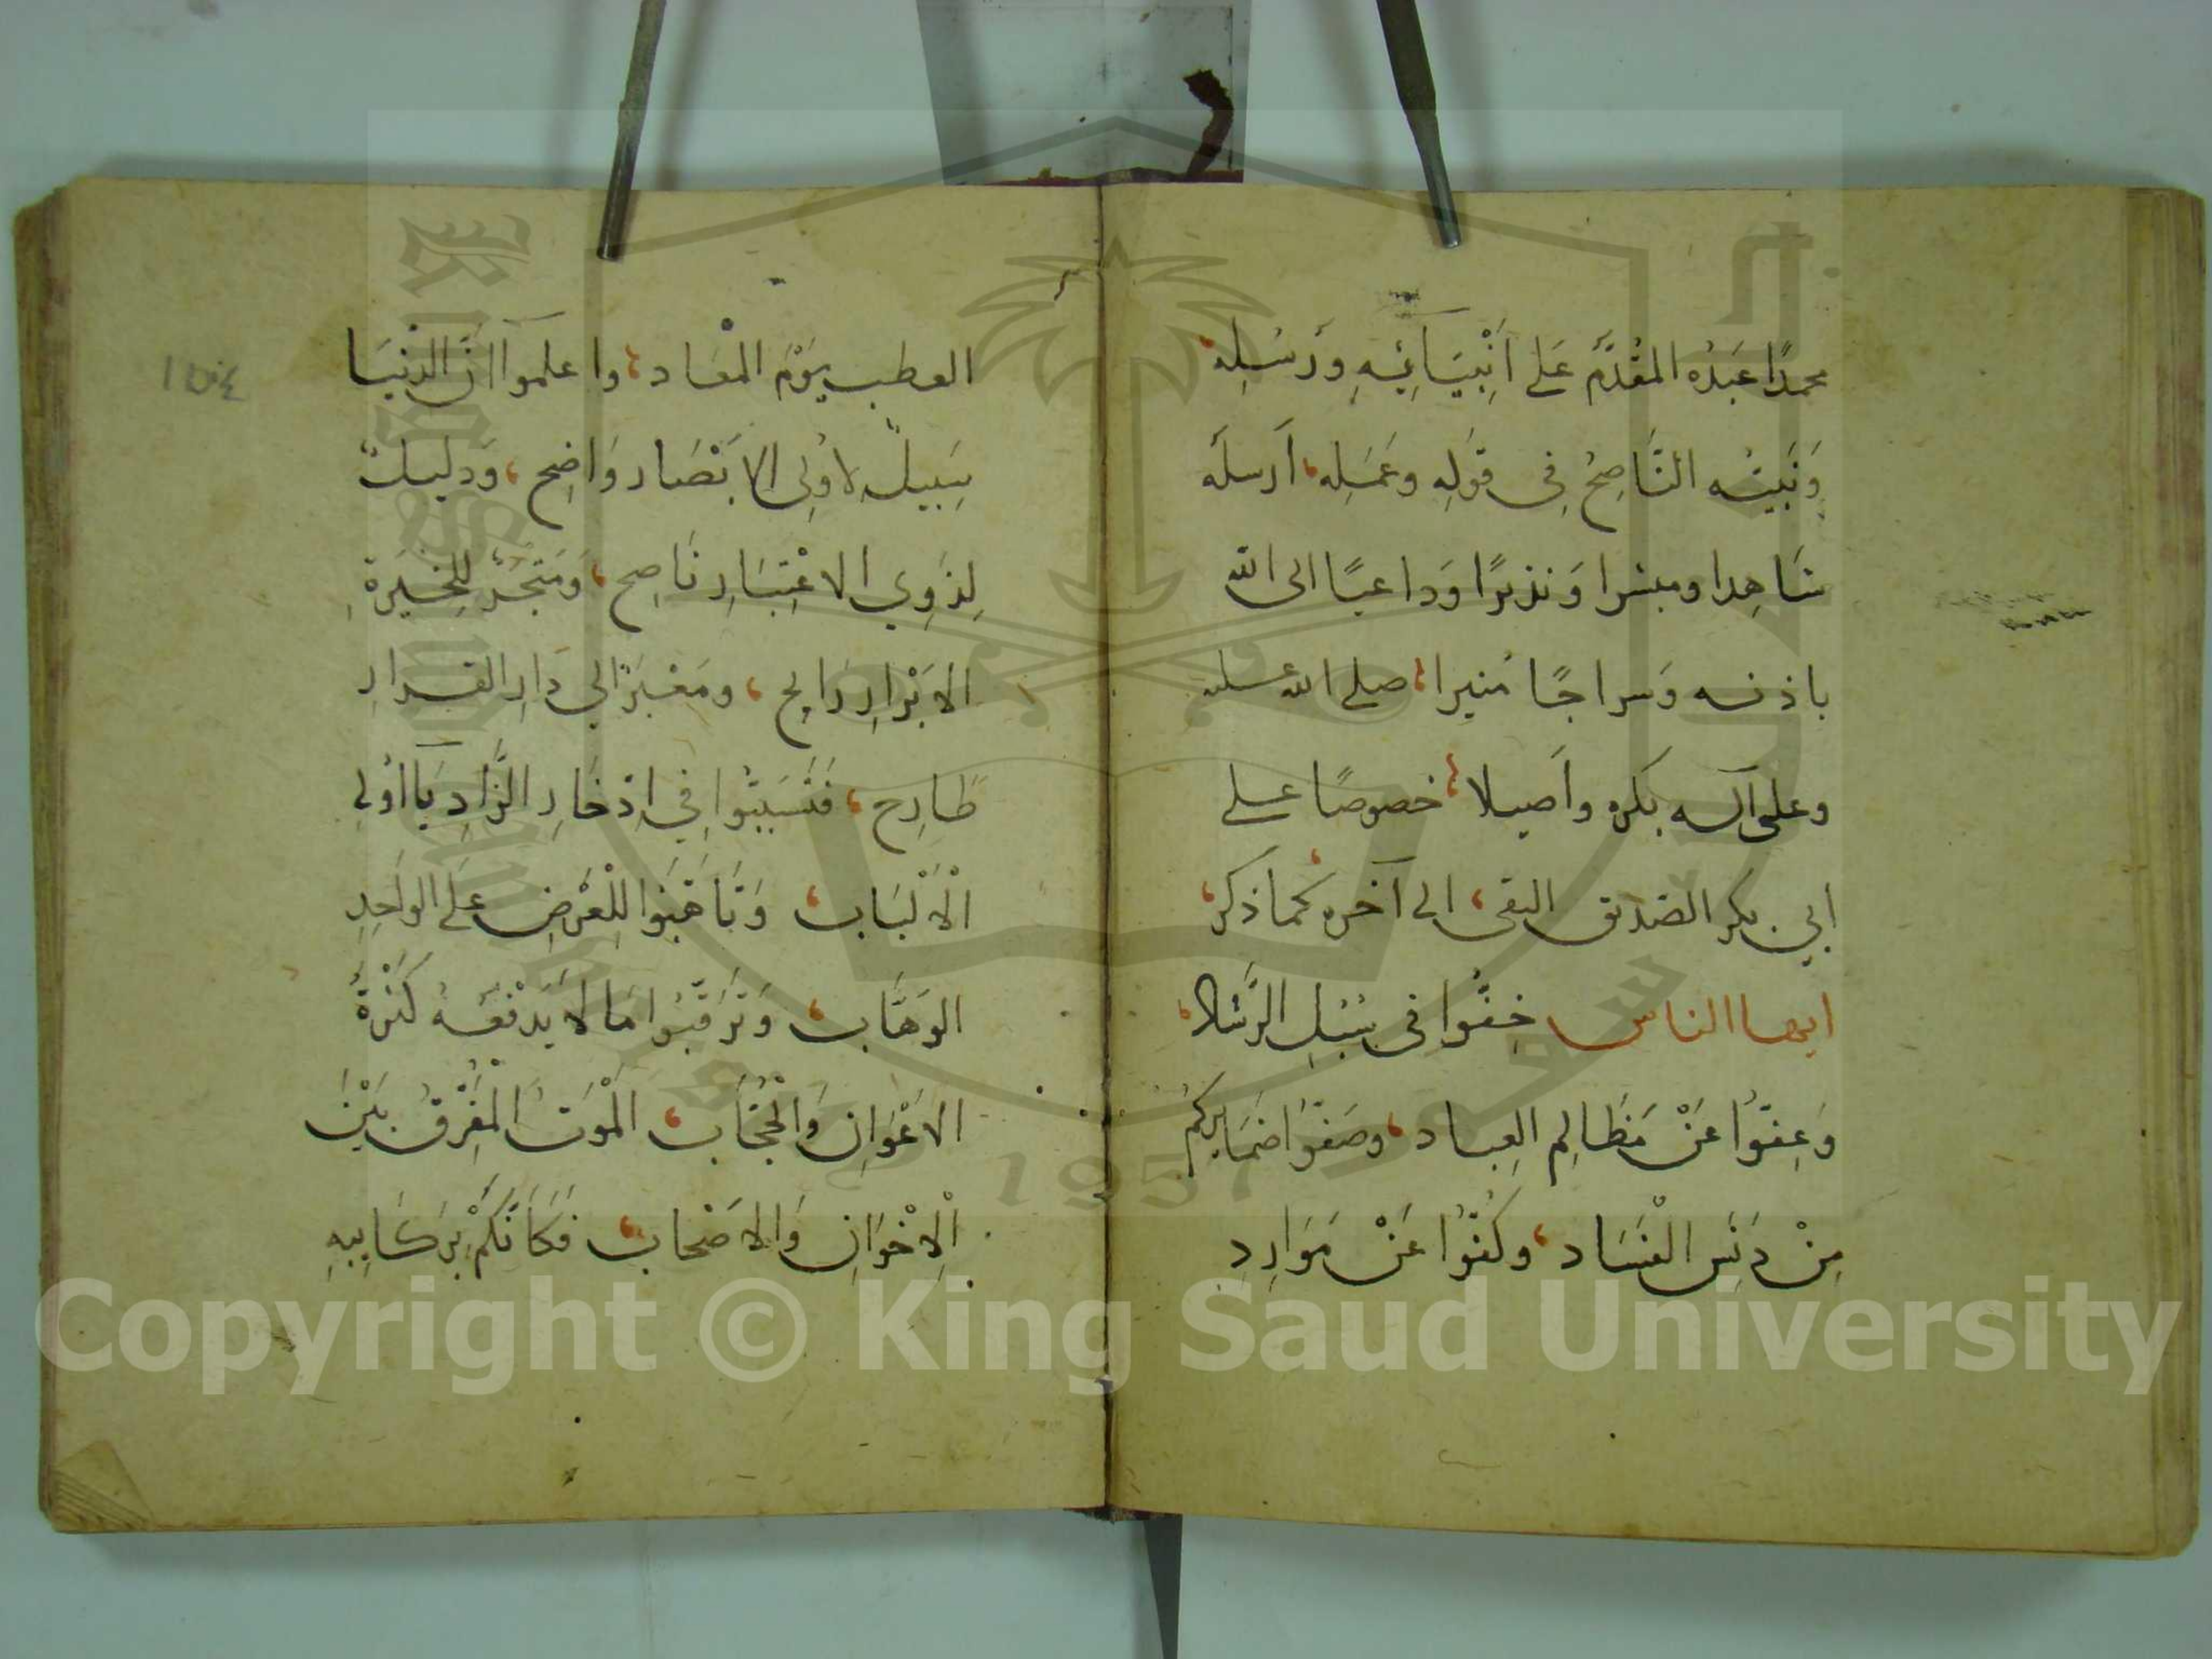 محمدًا عَبدُه المقُدَّم عَلى اَنْبِيَآئِهِ ورُسُلِه،
وَنَبِيُّه النَّاصِحُ فى قوَلِه وعَمَلِه، اَرسلَه
شَاهِدا ومبشرا وَنذيرًا وَداعيًا الى الله
باذنه وَسراجًا مُنيرا، صلى الله عليه وسلم
وعلى آله بكره واَصيلا، خصوصًا على
ابي بكر الصّديق التقى، الى آخره كما ذكر،
ايها الناس خِفُّوا فى سُبُلِ الرَّشاد،
وَعِفّوُا عَنْ مَظَالِم العِباد، وصَفّوُا ضَمَايركُم
مِنْ دَنَسِ الفسَاد، وكُفّوُا عَنْ مَوَارِدِ
العطب يَوْمَ المعَاد، واعلموآ انَّ الدُّنيَا
سَبيلٌ لِاُولِى الابْصَار وَاضِح، وَدليلٌ
لِذَوِي الاعْتِبَارِ نَاصِح، وَمَتْجَرٌ لِلخِيَرَةِ
الابْرارِ رَابِح، ومَعْبَرٌ الي دَارِ القرارِ
طَارِح، فَتَسَبَّبُوا فِي اِدّخَارِ الزَّادِ يَآ اُولِى
الْاَلْبَاب، وَتَاَهَّبَوا لِلْعَرْضِ عَلَى الواحِدِ
الوَهَّاب، وَتَرَقَّبُوا مَا لَا يَدْفَعُهُ كَثْرَةُ
الاعْوَانِ وَالْحُجَّاب، الْمَوْتُ الْمُفَرِّقُ بَيْنَ
الْاِخْوَانِ وَالاصْحاب، فَكَاَنَّكُمْ بِرَكَايِبِهِ
١٥٤
Copyright © King Saud University
1957